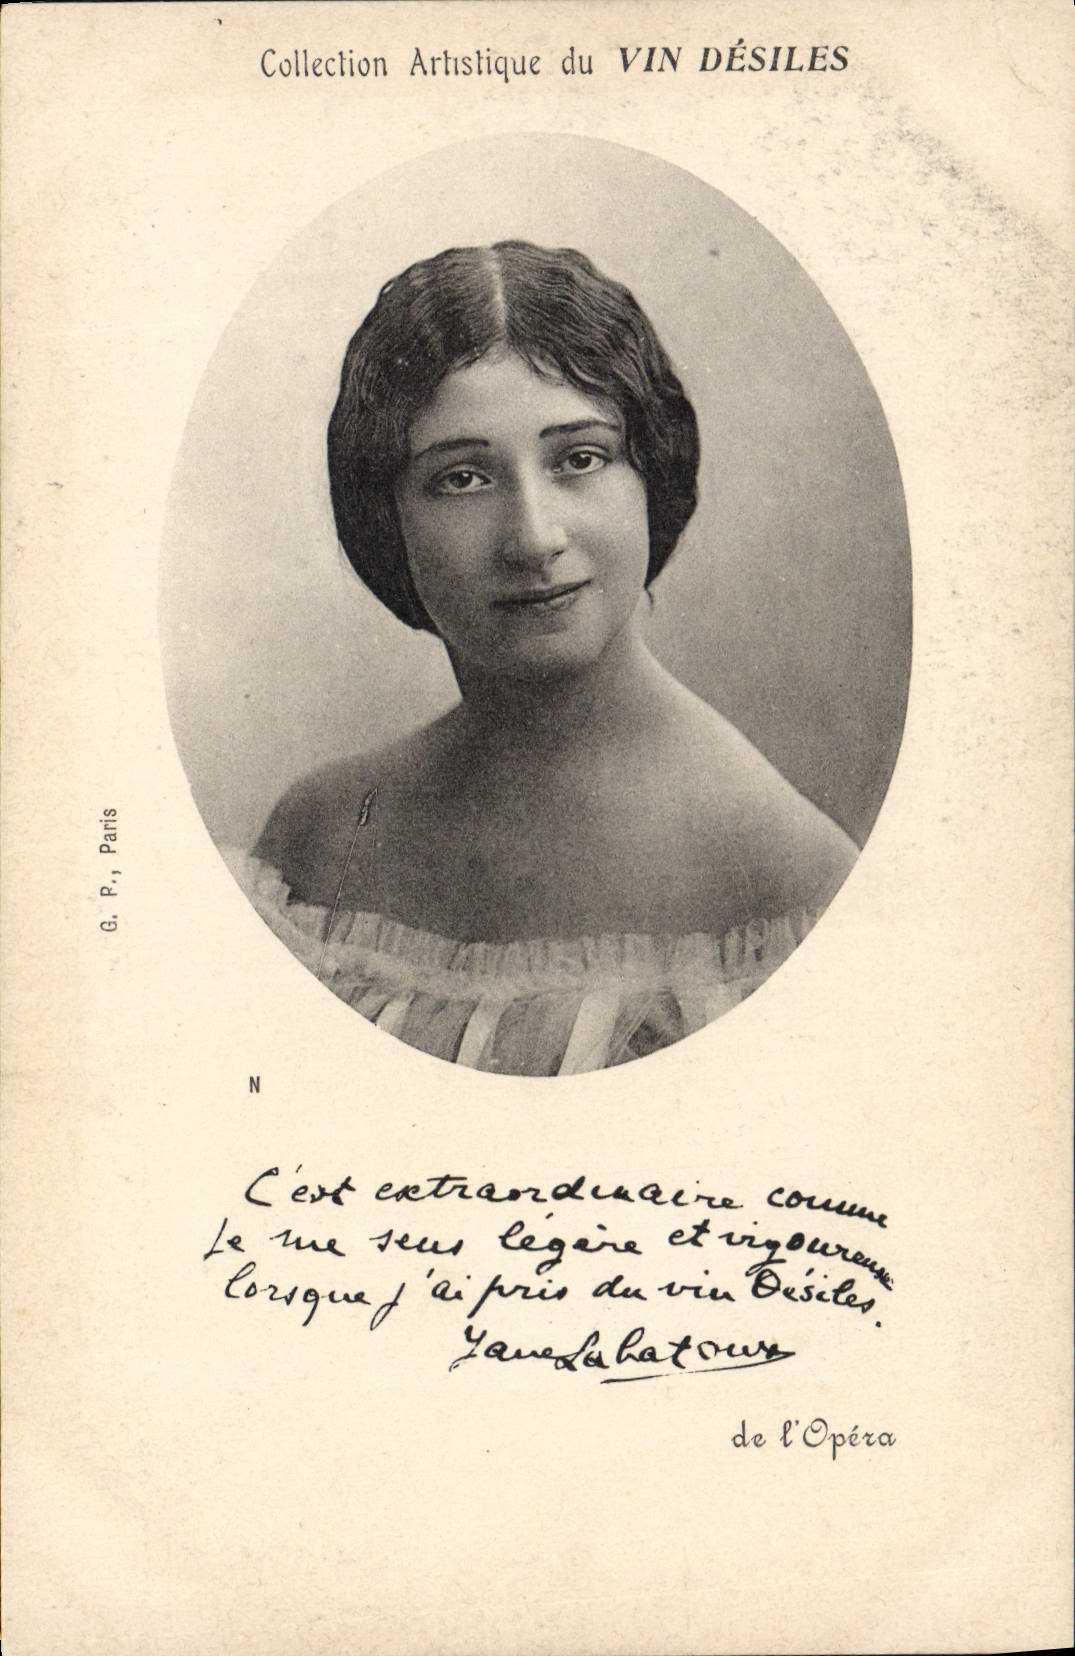 Collection Artistique du VIN DÉSILES
G. P., Paris
N
C'est extraordinaire comme
je me sens légère et vigoureuse
lorsque j'ai pris du vin Désiles.
Jane Labatoux
de l'Opéra